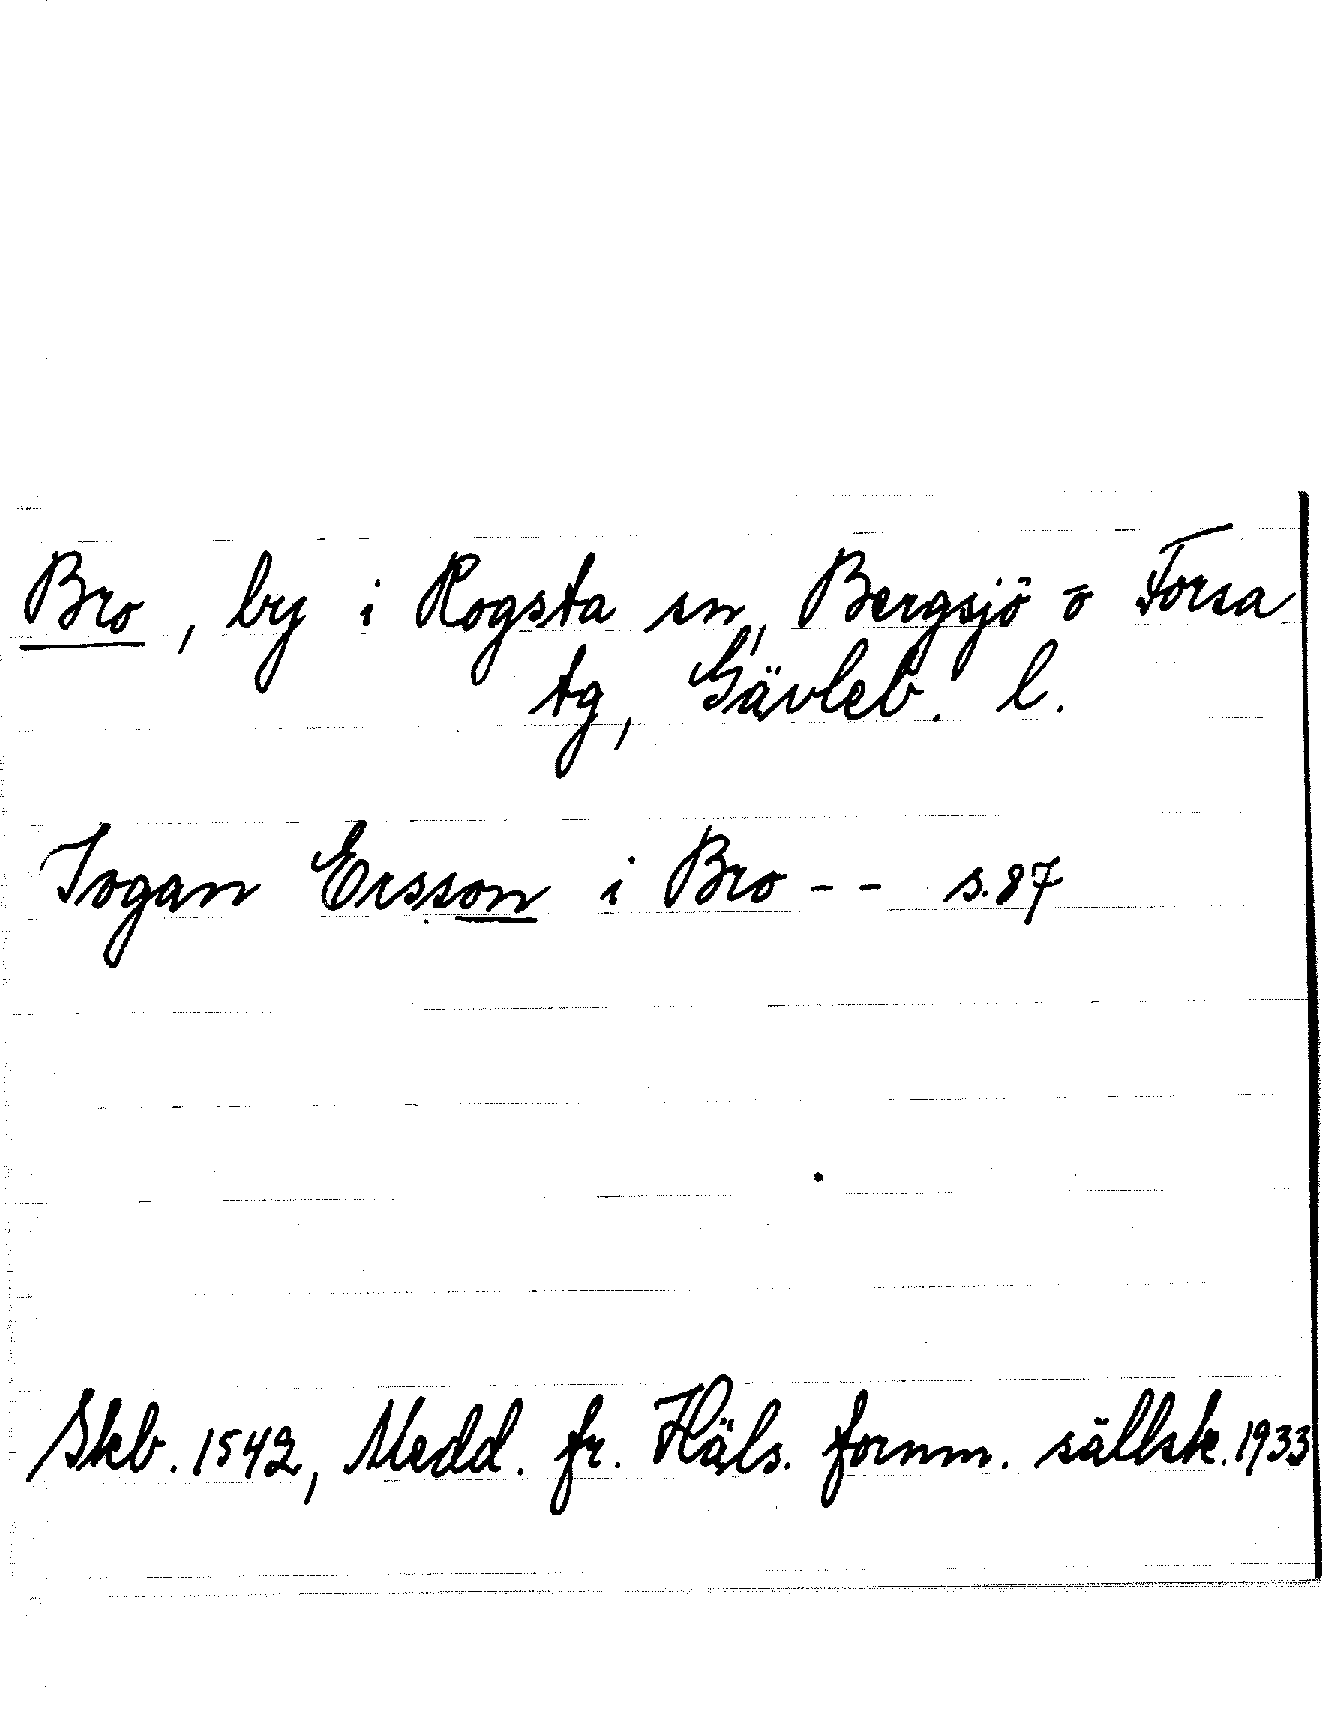 Bro, by i Rogsta sn, Bergsjö o Forsa
tg, Gävleb. l.
Iogan Ersson i Bro -- s.87
Skb. 1542, Medd. fr. Häls. fornm. sällsk. 1933